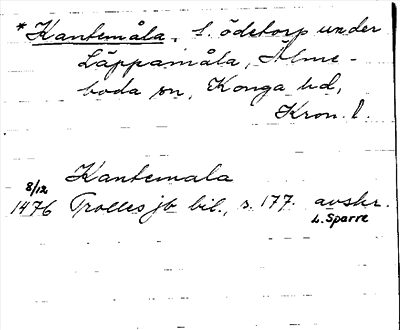 * Kantemåla, f. ödetorp under
Läppamåla, Älme-
boda sn, Konga hd,
Kron. l.
Kantemala
8/12
1476 Trolles jb bil., s. 177. avskr.
L. Sparre